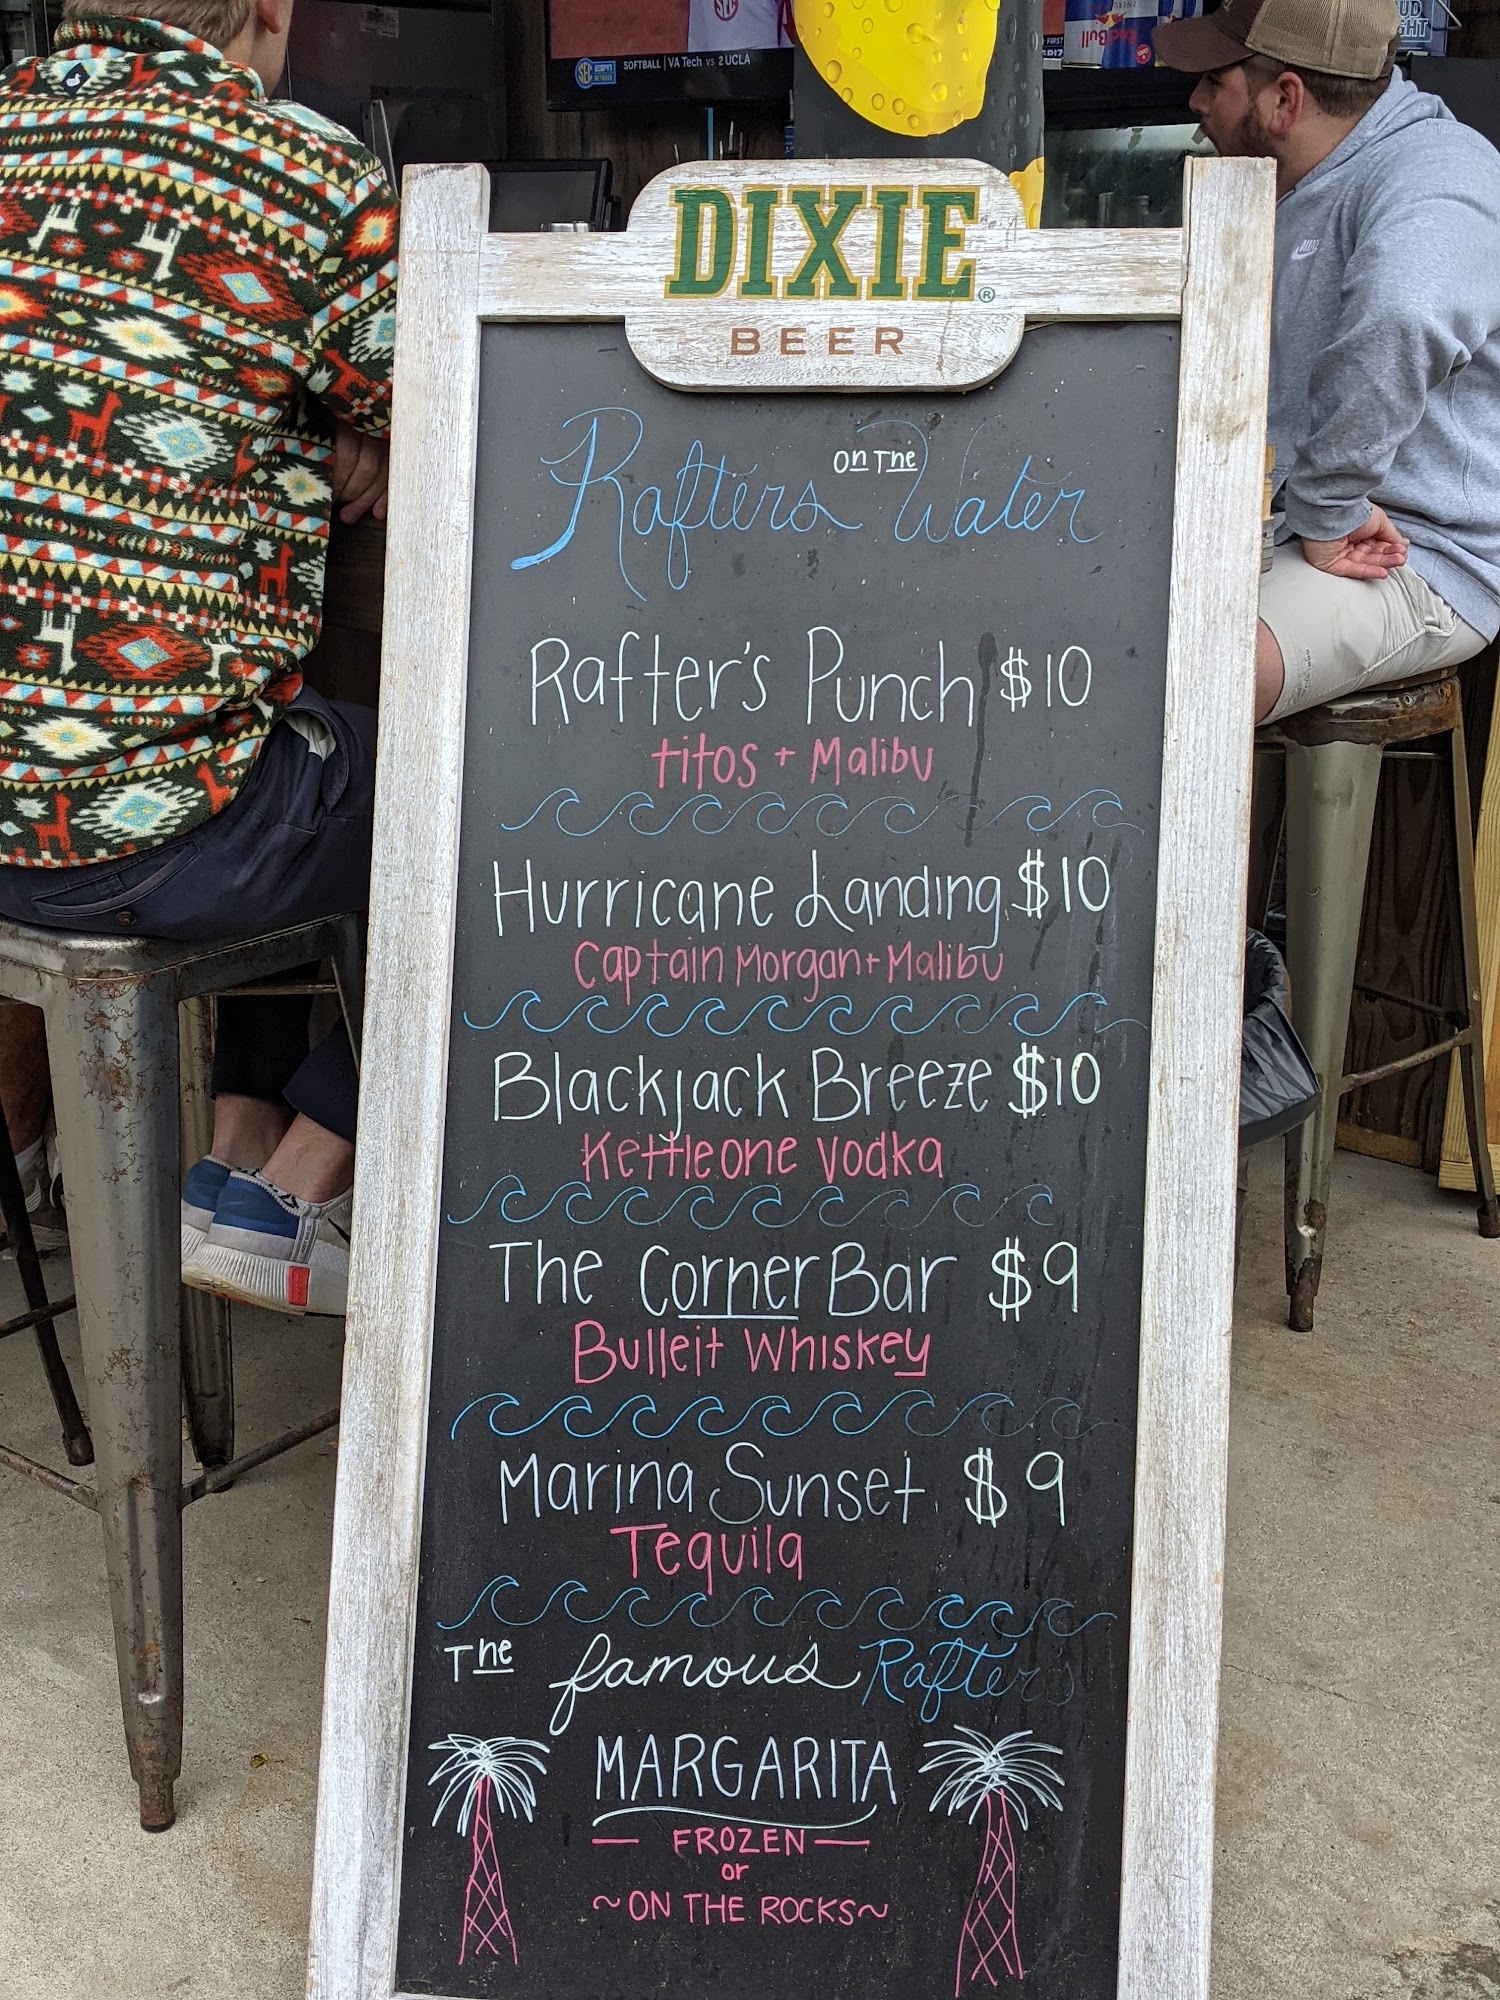 SEC
SEC ESPN NETWORK SOFTBALL | VA Tech vs 2 UCLA
FIRST
Red Bull
NIKE
DIXIE®
BEER
Rafters on The Water
Rafter's Punch $10
titos + Malibu
Hurricane Landing $10
Captain Morgan + Malibu
Blackjack Breeze $10
Kettleone Vodka
The Corner Bar $9
Bulleit Whiskey
Marina Sunset $9
Tequila
The famous Rafter's
MARGARITA
— FROZEN —
or
~ON THE ROCKS~